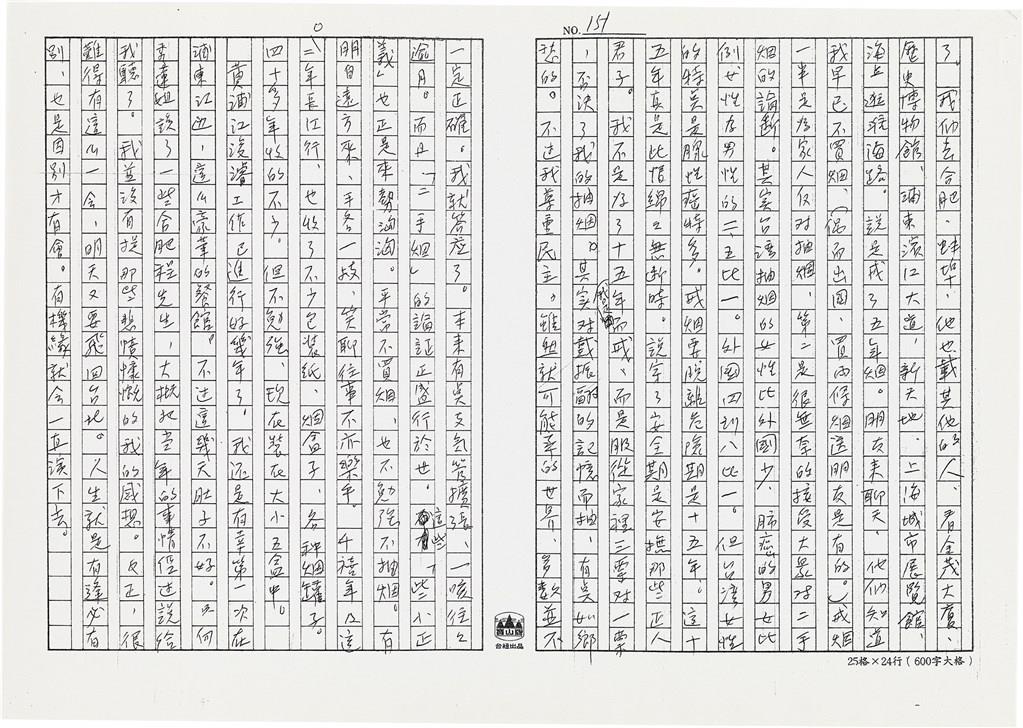 NO. 151
了。我們去合肥、蚌埠,他也載其他的人、看金茂大廈、
歷史博物館、浦東濱江大道、新天地、上海城市展覽館、
海上遊強海路。說是戒了五年烟。朋友來聊天,他們知道
我早已不買烟、(偶而出國、買兩條烟送朋友是有的。)戒烟
一半是為家人反对抽烟、第二是很無拿的接受大眾对二手
烟的論斷。其实台湾抽烟的女性比外國少,肺癌的男女比
例女性为男性的二、五比一。外國四到八比一。但台湾女性
的特異是腺性癌特多。戒烟要脫離危險期是十五年。這十
五年真是此恨綿綿無断時。說穿了安全期是安撫那些正人
君子。我不是为了十五年而戒、而是服從家裡三票对一票
,否決了我的抽烟。其实我是对戴振翮的記憶而抽,有吳如鄉
愁的。不过我尊重民主。雖然就可能華的世界、多数並不
一定正確。我就答应了。本來有吳支氣管擴張、一咳往々
逾月。而且「二手烟」的論証正盛行於世。這些「小正
義」也正是來勢洶洶。平常不買烟、也不勉強不抽烟。有
朋自遠方來、手各一枝、笑聊往事不亦樂乎。4禧年及這
二年長江行、也收了不少包装紙、烟盒子、各种烟罐子。
四十多年收的不少。但不勉強、現在裝在大小五盒中。
黄浦江浚濬工作已進行好幾年了。我还是有幸第一次在
浦東江边,這么豪華的餐館。不过這幾天肚子不好。如何
秀蓮姐說了一些合肥程先生,大概把当年的事情促述說給
我聽了。我並没有提那些悲憤慷慨的我的感想。反正、很
難得有這么一会、明天又要飛回台北。人生就是有逢必有
别、也是因别才有會。有機緣就会一直演下去。
寶山牌
台紐出品
25格×24行(600字大格)